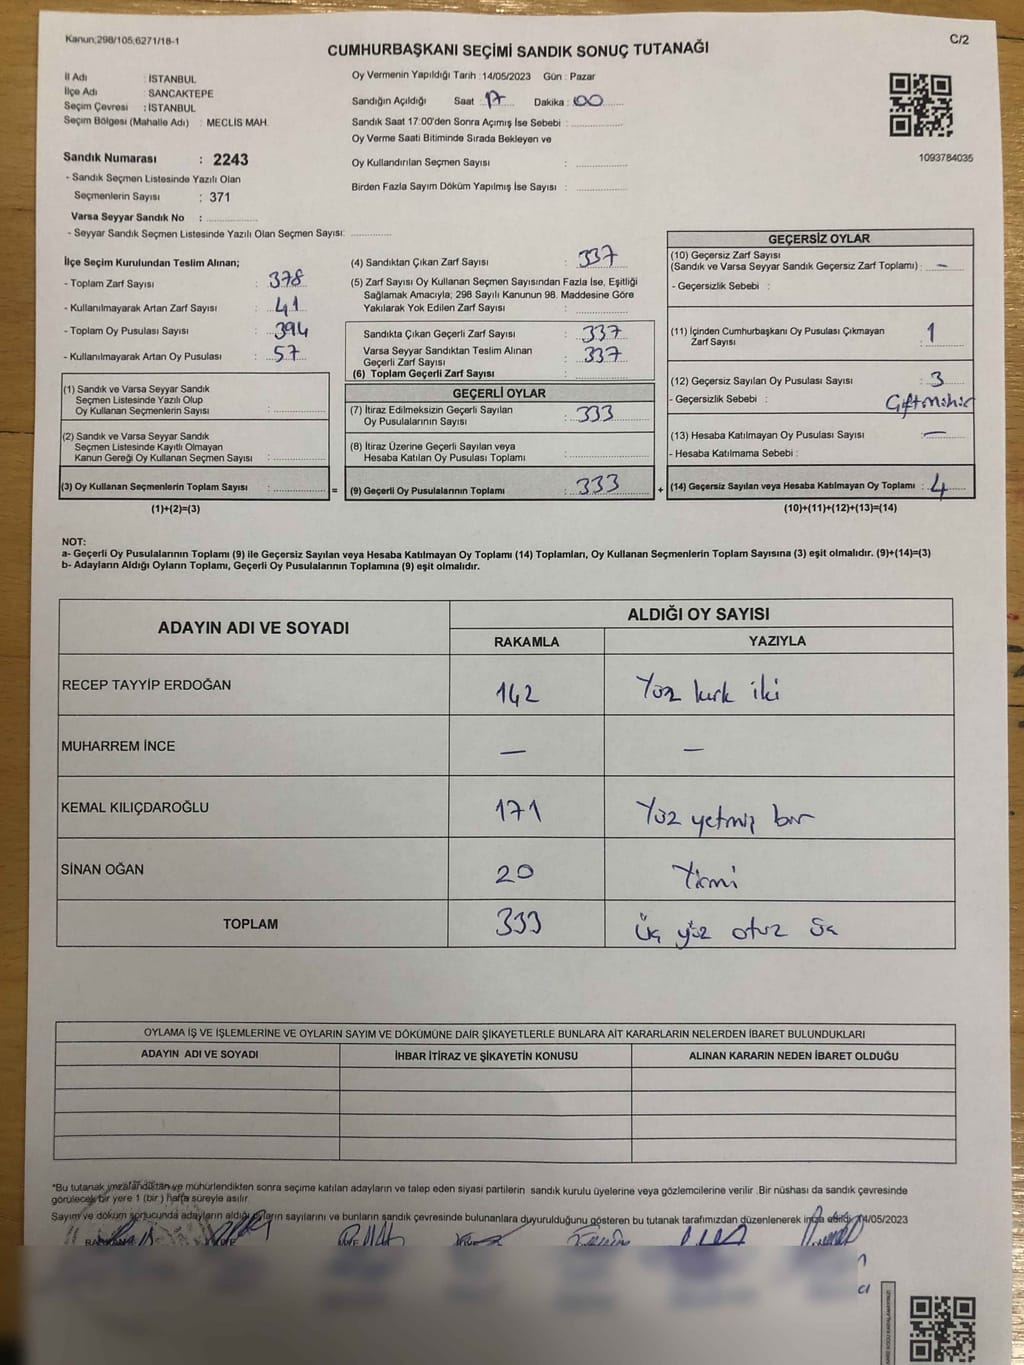 Kanun;298/105,6271/18-1
C/2
CUMHURBAŞKANI SEÇİMİ SANDIK SONUÇ TUTANAĞI
İl Adı : İSTANBUL
İlçe Adı : SANCAKTEPE
Seçim Çevresi : İSTANBUL
Seçim Bölgesi (Mahalle Adı) : MECLİS MAH.
Sandık Numarası : 2243
- Sandık Seçmen Listesinde Yazılı Olan
Seçmenlerin Sayısı : 371
Varsa Seyyar Sandık No :
- Seyyar Sandık Seçmen Listesinde Yazılı Olan Seçmen Sayısı:
Oy Vermenin Yapıldığı Tarih :14/05/2023 Gün : Pazar
Sandığın Açıldığı Saat : 17 Dakika : 00
Sandık Saat 17:00'den Sonra Açımış İse Sebebi :
Oy Verme Saati Bitiminde Sırada Bekleyen ve
Oy Kullandırılan Seçmen Sayısı :
Birden Fazla Sayım Döküm Yapılmış İse Sayısı :
1093784035
İlçe Seçim Kurulundan Teslim Alınan;
- Toplam Zarf Sayısı : 378
- Kullanılmayarak Artan Zarf Sayısı : 41
- Toplam Oy Pusulası Sayısı : 394
- Kullanılmayarak Artan Oy Pusulası : 57
(1) Sandık ve Varsa Seyyar Sandık
Seçmen Listesinde Yazılı Olup
Oy Kullanan Seçmenlerin Sayısı :
(2) Sandık ve Varsa Seyyar Sandık
Seçmen Listesinde Kayıtlı Olmayan
Kanun Gereği Oy Kullanan Seçmen Sayısı :
(3) Oy Kullanan Seçmenlerin Toplam Sayısı :
(1)+(2)=(3)
(4) Sandıktan Çıkan Zarf Sayısı : 337
(5) Zarf Sayısı Oy Kullanan Seçmen Sayısından Fazla İse, Eşitliği
Sağlamak Amacıyla; 298 Sayılı Kanunun 98. Maddesine Göre
Yakılarak Yok Edilen Zarf Sayısı :
Sandıkta Çıkan Geçerli Zarf Sayısı : 337
Varsa Seyyar Sandıktan Teslim Alınan
Geçerli Zarf Sayısı : 337
(6) Toplam Geçerli Zarf Sayısı :
GEÇERLİ OYLAR
(7) İtiraz Edilmeksizin Geçerli Sayılan
Oy Pusulalarının Sayısı : 333
(8) İtiraz Üzerine Geçerli Sayılan veya
Hesaba Katılan Oy Pusulası Toplamı :
= (9) Geçerli Oy Pusulalarının Toplamı : 333 +
GEÇERSİZ OYLAR
(10) Geçersiz Zarf Sayısı
(Sandık ve Varsa Seyyar Sandık Geçersiz Zarf Toplamı) : –
- Geçersizlik Sebebi :
(11) İçinden Cumhurbaşkanı Oy Pusulası Çıkmayan
Zarf Sayısı : 1
(12) Geçersiz Sayılan Oy Pusulası Sayısı : 3
- Geçersizlik Sebebi :
(13) Hesaba Katılmayan Oy Pusulası Sayısı : —
- Hesaba Katılmama Sebebi :
(14) Geçersiz Sayılan veya Hesaba Katılmayan Oy Toplamı : 4
(10)+(11)+(12)+(13)=(14)
NOT:
a- Geçerli Oy Pusulalarının Toplamı (9) ile Geçersiz Sayılan veya Hesaba Katılmayan Oy Toplamı (14) Toplamları, Oy Kullanan Seçmenlerin Toplam Sayısına (3) eşit olmalıdır. (9)+(14)=(3)
b- Adayların Aldığı Oyların Toplamı, Geçerli Oy Pusulalarının Toplamına (9) eşit olmalıdır.
ADAYIN ADI VE SOYADI
ALDIĞI OY SAYISI
RAKAMLA YAZIYLA
RECEP TAYYİP ERDOĞAN 142 Yüz kırk iki
MUHARREM İNCE — —
KEMAL KILIÇDAROĞLU 171 Yüz yetmiş bir
SİNAN OĞAN 20 Yirmi
TOPLAM 333 Üç yüz otuz üç
OYLAMA İŞ VE İŞLEMLERİNE VE OYLARIN SAYIM VE DÖKÜMÜNE DAİR ŞİKAYETLERLE BUNLARA AİT KARARLARIN NELERDEN İBARET BULUNDUKLARI
ADAYIN ADI VE SOYADI İHBAR İTİRAZ VE ŞİKAYETİN KONUSU ALINAN KARARIN NEDEN İBARET OLDUĞU
*Bu tutanak imzalandıktan ve mühürlendikten sonra seçime katılan adayların ve talep eden siyasi partilerin sandık kurulu üyelerine veya gözlemcilerine verilir .Bir nüshası da sandık çevresinde
görülecek bir yere 1 (bir) hafta süreyle asılır.
Sayım ve döküm sonucunda adayların aldığı oyların sayılarını ve bunların sandık çevresinde bulunanlara duyurulduğunu gösteren bu tutanak tarafımızdan düzenlenerek imza edildi. 14/05/2023